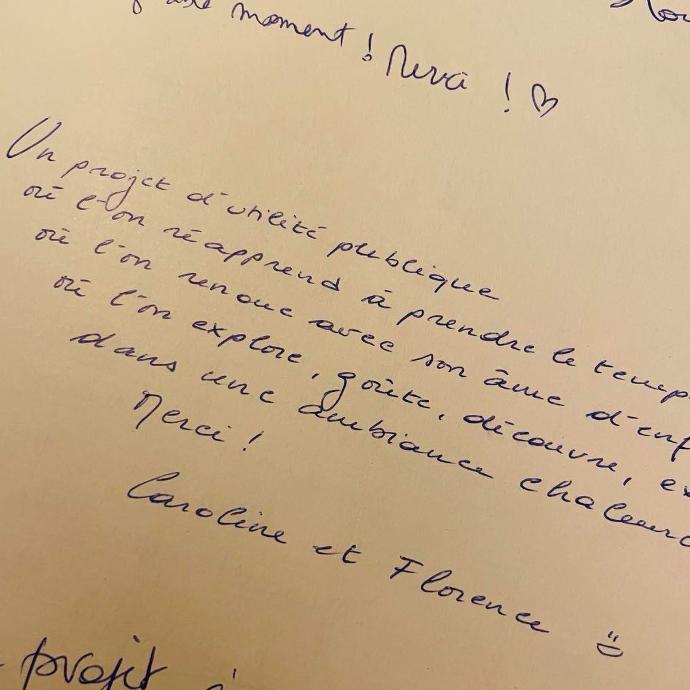 moment ! Merci ! ♡
Un projet d'utilité publique
où l'on réapprend à prendre le temp
où l'on renoue avec son âme d'enf
où l'on explore, goûte, découvre, ex
dans une ambiance chaleure
Merci !
Caroline et Florence
projet